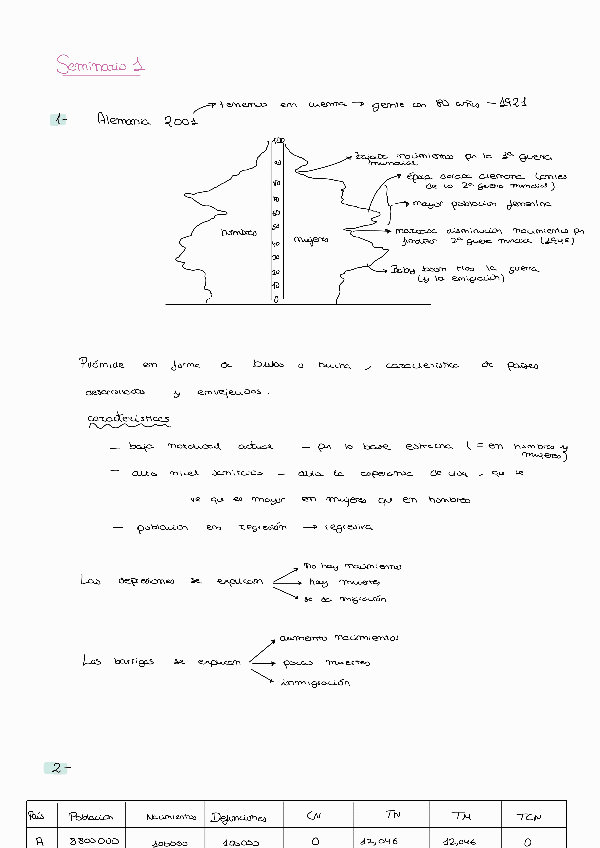 Seminario 1
tenemos en cuenta → gente con 80 años - 1921
1- Alemania 2001
100
90
80
70
60
50
40
30
20
10
0
hombres
mujeres
bajada nacimientos por la 1ª guerra mundial
época dorada alemana (antes de la 2ª guerra mundial)
→ mayor población femenina
marcada disminución nacimientos por finalizar 2ª guerra mundial (1945)
Baby boom tras la guerra
(y la emigración)
Pirámide en forma de bulbo o hucha, característica de países
desarrollados y envejecidos.
características
- baja natalidad actual - por lo base estrecha (= en hombres y mujeres)
- alto nivel sanitario - alta la esperanza de vida, que se
ve que es mayor en mujeres que en hombres
- población en regresión → regresiva
no hay nacimientos
Las depresiones se explican → hay muertes
se da migración
aumento nacimientos
Las barrigas se explican → pocas muertes
inmigración
2-
País Población Nacimientos Defunciones CN TN TM TCN
A 8800000 106000 106000 0 12,046 12,046 0